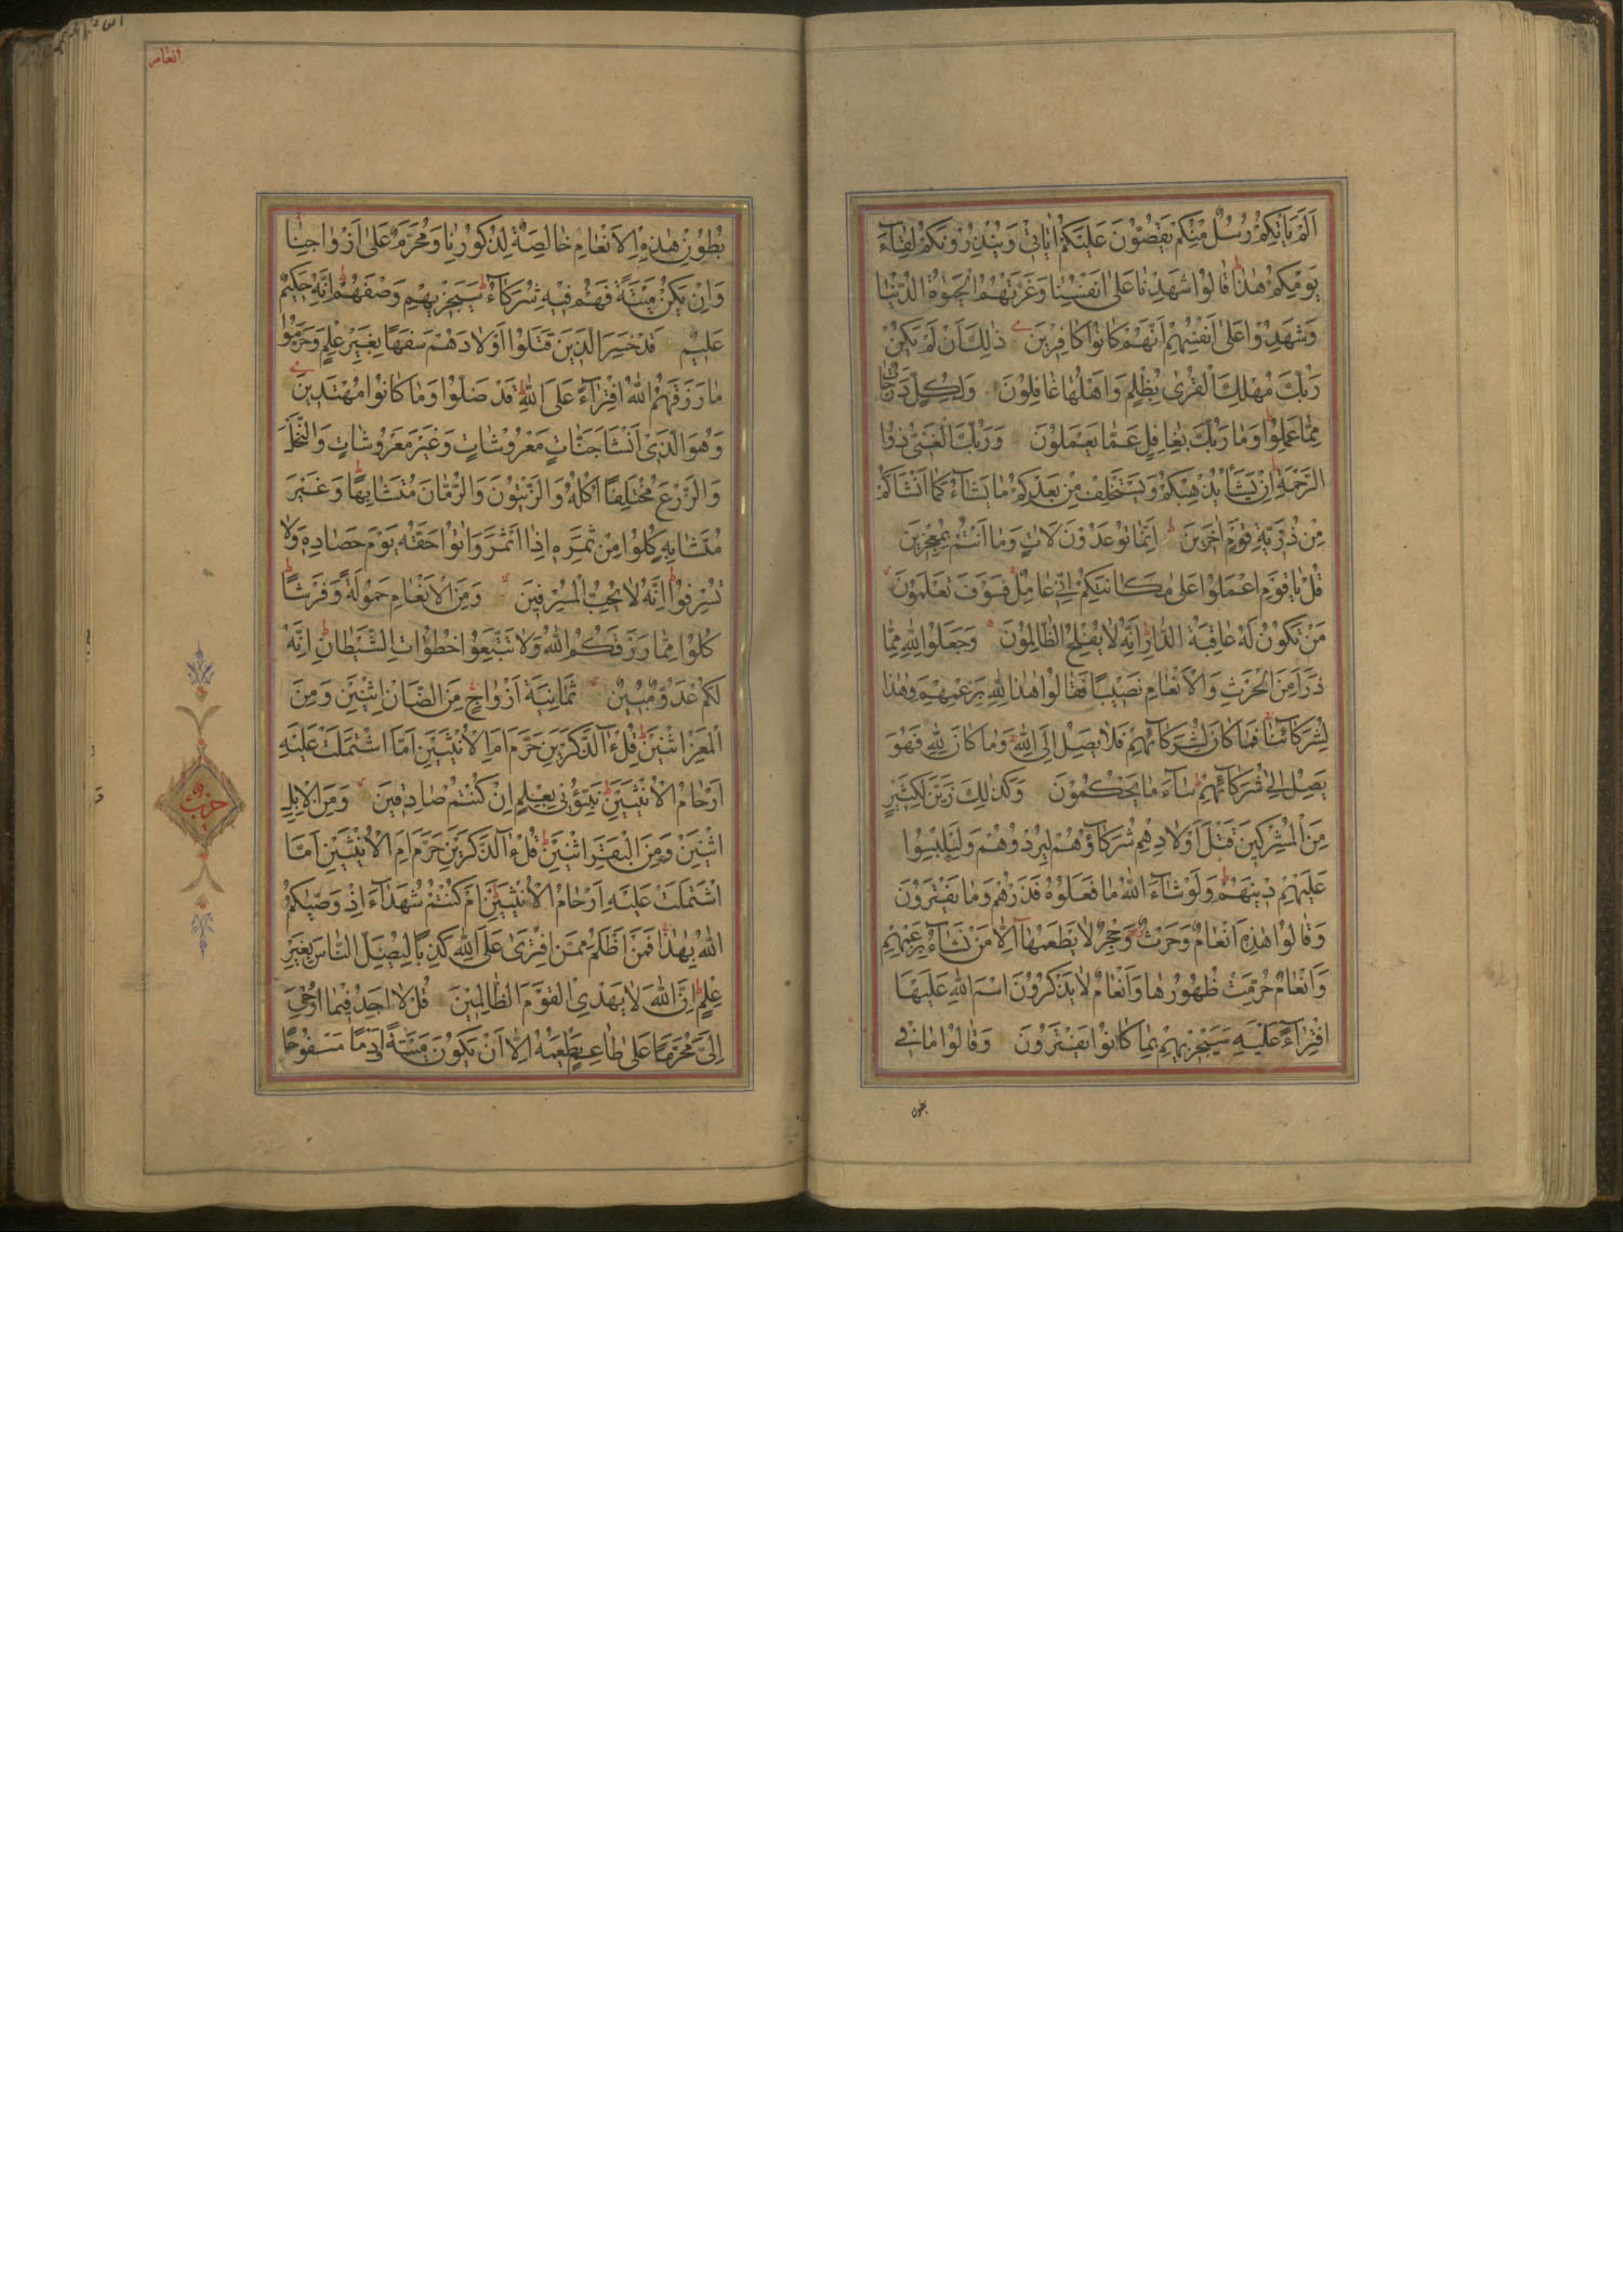 اَلَمْ يَاْتِكُمْ رُسُلٌ مِنْكُمْ يَقُصُّوْنَ عَلَيْكُمْ اٰيَاتِيْ وَيُنْذِرُوْنَكُمْ لِقَاۤءَ
يَوْمِكُمْ هٰذَا قَالُوْا شَهِدْنَا عَلٰى اَنْفُسِنَا وَغَرَّتْهُمُ الْحَيٰوةُ الدُّنْيَا
وَشَهِدُوْا عَلٰى اَنْفُسِهِمْ اَنَّهُمْ كَانُوْا كَافِرِيْنَ ذٰلِكَ اَنْ لَمْ يَكُنْ
رَبُّكَ مُهْلِكَ الْقُرٰى بِظُلْمٍ وَاَهْلُهَا غَافِلُوْنَ وَلِكُلٍّ دَرَجَاتٌ
مِمَّا عَمِلُوْا وَمَا رَبُّكَ بِغَافِلٍ عَمَّا يَعْمَلُوْنَ وَرَبُّكَ الْغَنِيُّ ذُوا
الرَّحْمَةِ اِنْ يَشَأْ يُذْهِبْكُمْ وَيَسْتَخْلِفْ مِنْ بَعْدِكُمْ مَا يَشَاۤءُ كَمَا اَنْشَاَكُمْ
مِنْ ذُرِّيَّةِ قَوْمٍ اٰخَرِيْنَ اِنَّمَا تُوْعَدُوْنَ لَاٰتٍ وَمَا اَنْتُمْ بِمُعْجِزِيْنَ
قُلْ يَا قَوْمِ اعْمَلُوْا عَلٰى مَكَانَتِكُمْ اِنِّيْ عَامِلٌ فَسَوْفَ تَعْلَمُوْنَ
مَنْ تَكُوْنُ لَهُ عَاقِبَةُ الدَّارِ اِنَّهُ لَا يُفْلِحُ الظَّالِمُوْنَ وَجَعَلُوْا لِلّٰهِ مِمَّا
ذَرَاَ مِنَ الْحَرْثِ وَالْاَنْعَامِ نَصِيْبًا فَقَالُوْا هٰذَا لِلّٰهِ بِزَعْمِهِمْ وَهٰذَا
لِشُرَكَاۤئِنَا فَمَا كَانَ لِشُرَكَاۤئِهِمْ فَلَا يَصِلُ اِلَى اللّٰهِ وَمَا كَانَ لِلّٰهِ فَهُوَ
يَصِلُ اِلٰى شُرَكَاۤئِهِمْ سَاۤءَ مَا يَحْكُمُوْنَ وَكَذٰلِكَ زَيَّنَ لِكَثِيْرٍ
مِنَ الْمُشْرِكِيْنَ قَتْلَ اَوْلَادِهِمْ شُرَكَاۤؤُهُمْ لِيُرْدُوْهُمْ وَلِيَلْبِسُوْا
عَلَيْهِمْ دِيْنَهُمْ وَلَوْ شَاۤءَ اللّٰهُ مَا فَعَلُوْهُ فَذَرْهُمْ وَمَا يَفْتَرُوْنَ
وَقَالُوْا هٰذِهِ اَنْعَامٌ وَحَرْثٌ وَحِجْرٌ لَا يَطْعَمُهَا اِلَّا مَنْ نَشَاۤءُ بِزَعْمِهِمْ
وَاَنْعَامٌ حُرِّمَتْ ظُهُوْرُهَا وَاَنْعَامٌ لَا يَذْكُرُوْنَ اسْمَ اللّٰهِ عَلَيْهَا
افْتِرَاۤءً عَلَيْهِ سَيَجْزِيْهِمْ بِمَا كَانُوْا يَفْتَرُوْنَ وَقَالُوْا مَا فِيْ
بطون
انعام
بُطُوْنِ هٰذِهِ الْاَنْعَامِ خَالِصَةٌ لِذُكُوْرِنَا وَمُحَرَّمٌ عَلٰى اَزْوَاجِنَا
وَاِنْ يَكُنْ مَيْتَةً فَهُمْ فِيْهِ شُرَكَاۤءُ سَيَجْزِيْهِمْ وَصْفَهُمْ اِنَّهُ حَكِيْمٌ
عَلِيْمٌ قَدْ خَسِرَ الَّذِيْنَ قَتَلُوْا اَوْلَادَهُمْ سَفَهًا بِغَيْرِ عِلْمٍ وَحَرَّمُوْا
مَا رَزَقَهُمُ اللّٰهُ افْتِرَاۤءً عَلَى اللّٰهِ قَدْ ضَلُّوْا وَمَا كَانُوْا مُهْتَدِيْنَ
وَهُوَ الَّذِيْ اَنْشَاَ جَنَّاتٍ مَعْرُوْشَاتٍ وَغَيْرَ مَعْرُوْشَاتٍ وَالنَّخْلَ
وَالزَّرْعَ مُخْتَلِفًا اُكُلُهُ وَالزَّيْتُوْنَ وَالرُّمَّانَ مُتَشَابِهًا وَغَيْرَ
مُتَشَابِهٍ كُلُوْا مِنْ ثَمَرِهِ اِذَا اَثْمَرَ وَاٰتُوْا حَقَّهُ يَوْمَ حَصَادِهِ وَلَا
تُسْرِفُوْا اِنَّهُ لَا يُحِبُّ الْمُسْرِفِيْنَ وَمِنَ الْاَنْعَامِ حَمُوْلَةً وَفَرْشًا
كُلُوْا مِمَّا رَزَقَكُمُ اللّٰهُ وَلَا تَتَّبِعُوْا خُطُوَاتِ الشَّيْطَانِ اِنَّهُ
لَكُمْ عَدُوٌّ مُبِيْنٌ ثَمَانِيَةَ اَزْوَاجٍ مِنَ الضَّاْنِ اثْنَيْنِ وَمِنَ
الْمَعْزِ اثْنَيْنِ قُلْ ءٰۤالذَّكَرَيْنِ حَرَّمَ اَمِ الْاُنْثَيَيْنِ اَمَّا اشْتَمَلَتْ عَلَيْهِ
اَرْحَامُ الْاُنْثَيَيْنِ نَبِّؤُنِيْ بِعِلْمٍ اِنْ كُنْتُمْ صَادِقِيْنَ وَمِنَ الْاِبِلِ
اثْنَيْنِ وَمِنَ الْبَقَرِ اثْنَيْنِ قُلْ ءٰۤالذَّكَرَيْنِ حَرَّمَ اَمِ الْاُنْثَيَيْنِ اَمَّا
اشْتَمَلَتْ عَلَيْهِ اَرْحَامُ الْاُنْثَيَيْنِ اَمْ كُنْتُمْ شُهَدَاۤءَ اِذْ وَصّٰيكُمُ
اللّٰهُ بِهٰذَا فَمَنْ اَظْلَمُ مِمَّنِ افْتَرٰى عَلَى اللّٰهِ كَذِبًا لِيُضِلَّ النَّاسَ بِغَيْرِ
عِلْمٍ اِنَّ اللّٰهَ لَا يَهْدِي الْقَوْمَ الظَّالِمِيْنَ قُلْ لَا اَجِدُ فِيْمَا اُوْحِيَ
اِلَيَّ مُحَرَّمًا عَلٰى طَاعِمٍ يَطْعَمُهُ اِلَّا اَنْ يَكُوْنَ مَيْتَةً اَوْ دَمًا مَسْفُوْحًا
حزب